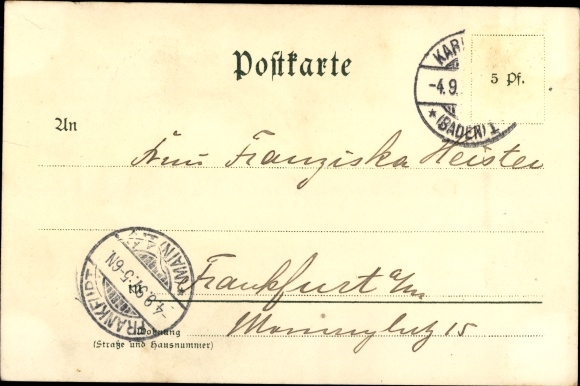 Postkarte
KAR
-4.9.
*(BADEN)1.
5 Pf.
An
Frau Franziska Heister
FRANKFURT *(MAIN)
-4.9.9 5-6N.
in Frankfurt a/m
Wohnung
(Straße und Hausnummer)
15